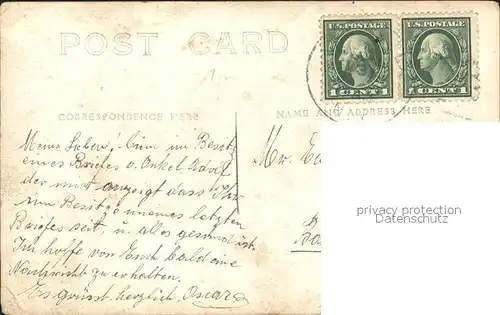 POST CARD
U.S. POSTAGE
1 CENT 1
U.S. POSTAGE
1 CENT 1
CORRESPONDENCE HERE
NAME AND ADDRESS HERE
Meine Lieben! Bin im Besitz
eines Briefes v. Onkel Adolf
der mir anzeigt dass Ihr
im Besitze meines letzten
Briefes seit, u. alles gesund ist.
Ich hoffe von Euch bald eine
Nachricht zu erhalten.
Es grüsst herzlich, Oscar
Mr.
privacy protection
Datenschutz